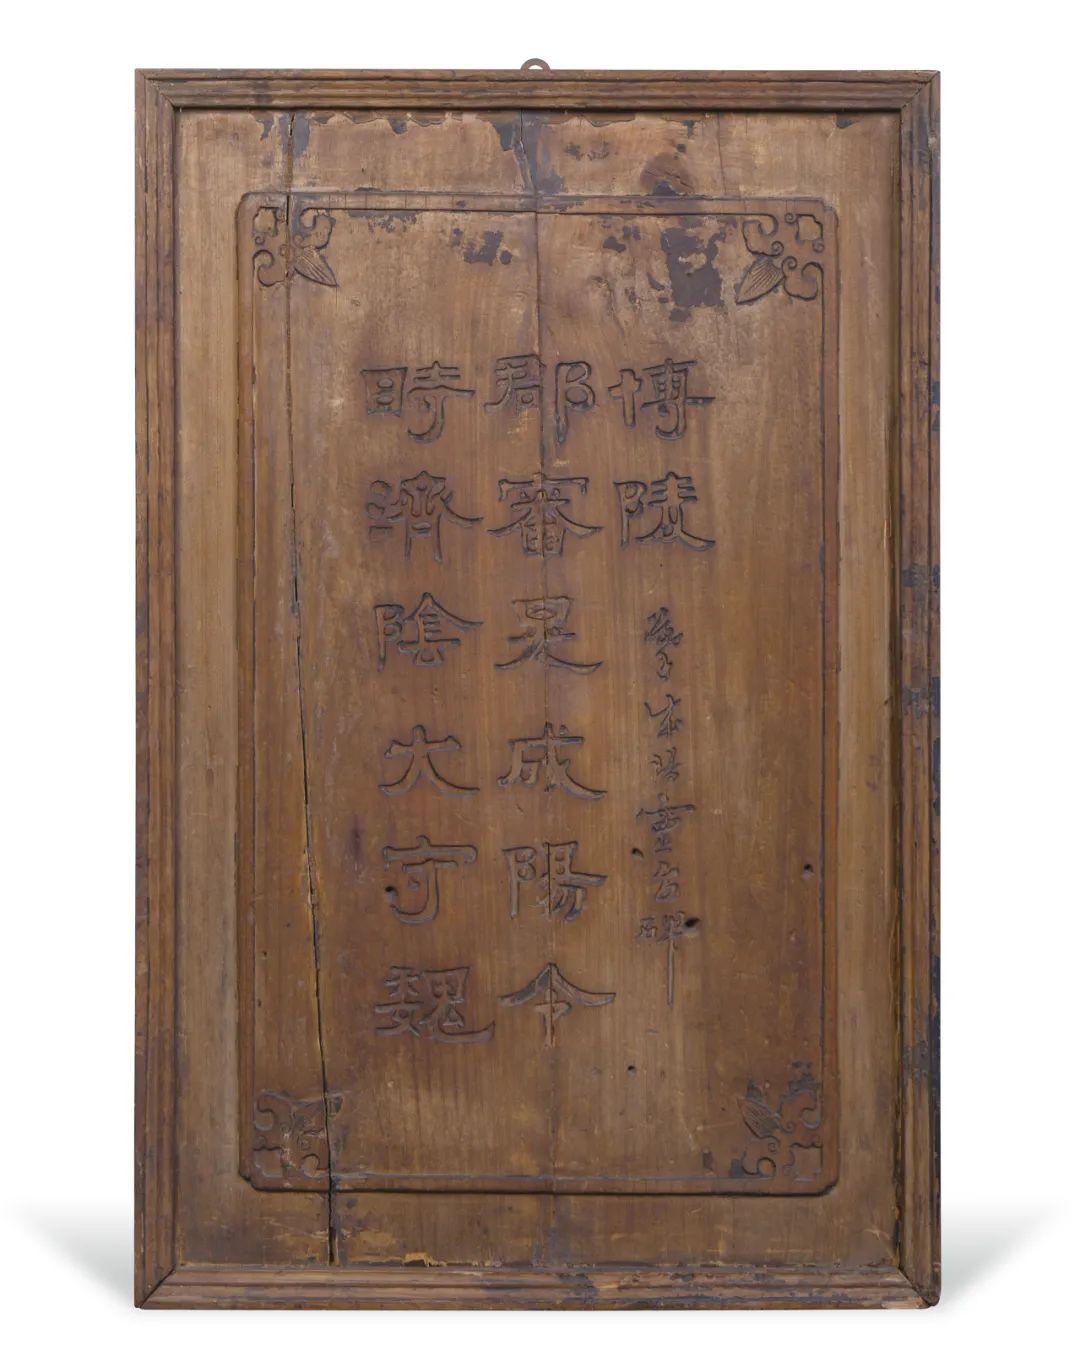 時濟陰大守魏
郡審晃成陽令
博陵
成陽靈台碑